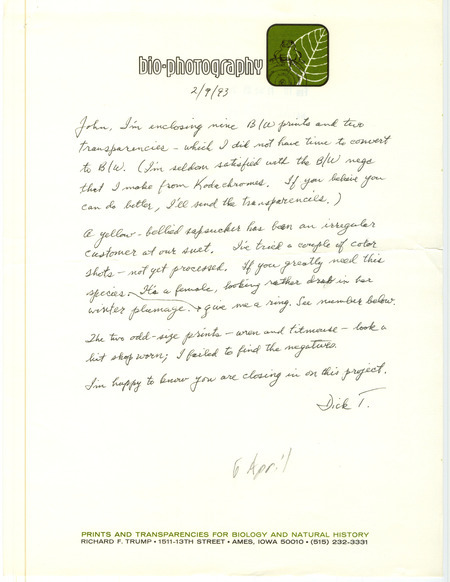 bio-photography
2/9/93
John, I'm enclosing nine B/W prints and two
transparencies - which I did not have time to convert
to B/W. (I'm seldom satisfied with the B/W negs
that I make from Kodachromes. If you believe you
can do better, I'll send the transparencies.)
A yellow-bellied sapsucker has been an irregular
customer at our suet. I've tried a couple of color
shots - not yet processed. If you greatly need this
species. It's a female, looking rather drab in her
winter plumage. → give me a ring. See number below.
The two odd-size prints - wren and titmouse - look a
bit shopworn; I failed to find the negatives.
I'm happy to know you are closing in on this project.
Dick T.
6 April
PRINTS AND TRANSPARENCIES FOR BIOLOGY AND NATURAL HISTORY
RICHARD F. TRUMP • 1511-13TH STREET • AMES, IOWA 50010 • (515) 232-3331